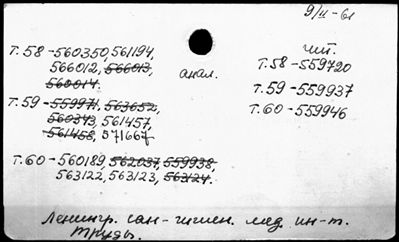 9/II-61
Т.58-560350, 561194,
566012, 566013,
560014.
анал.
Т.59-559971, 563652,
560343, 561457,
561458, 571667
Т.60-560189, 562037, 559938,
563122, 563123, 563124.
чит.
Т.58-559720
Т.59-559937
Т.60-559946
Ленингр. сан-гигиен. мед. ин-т.
Труды.